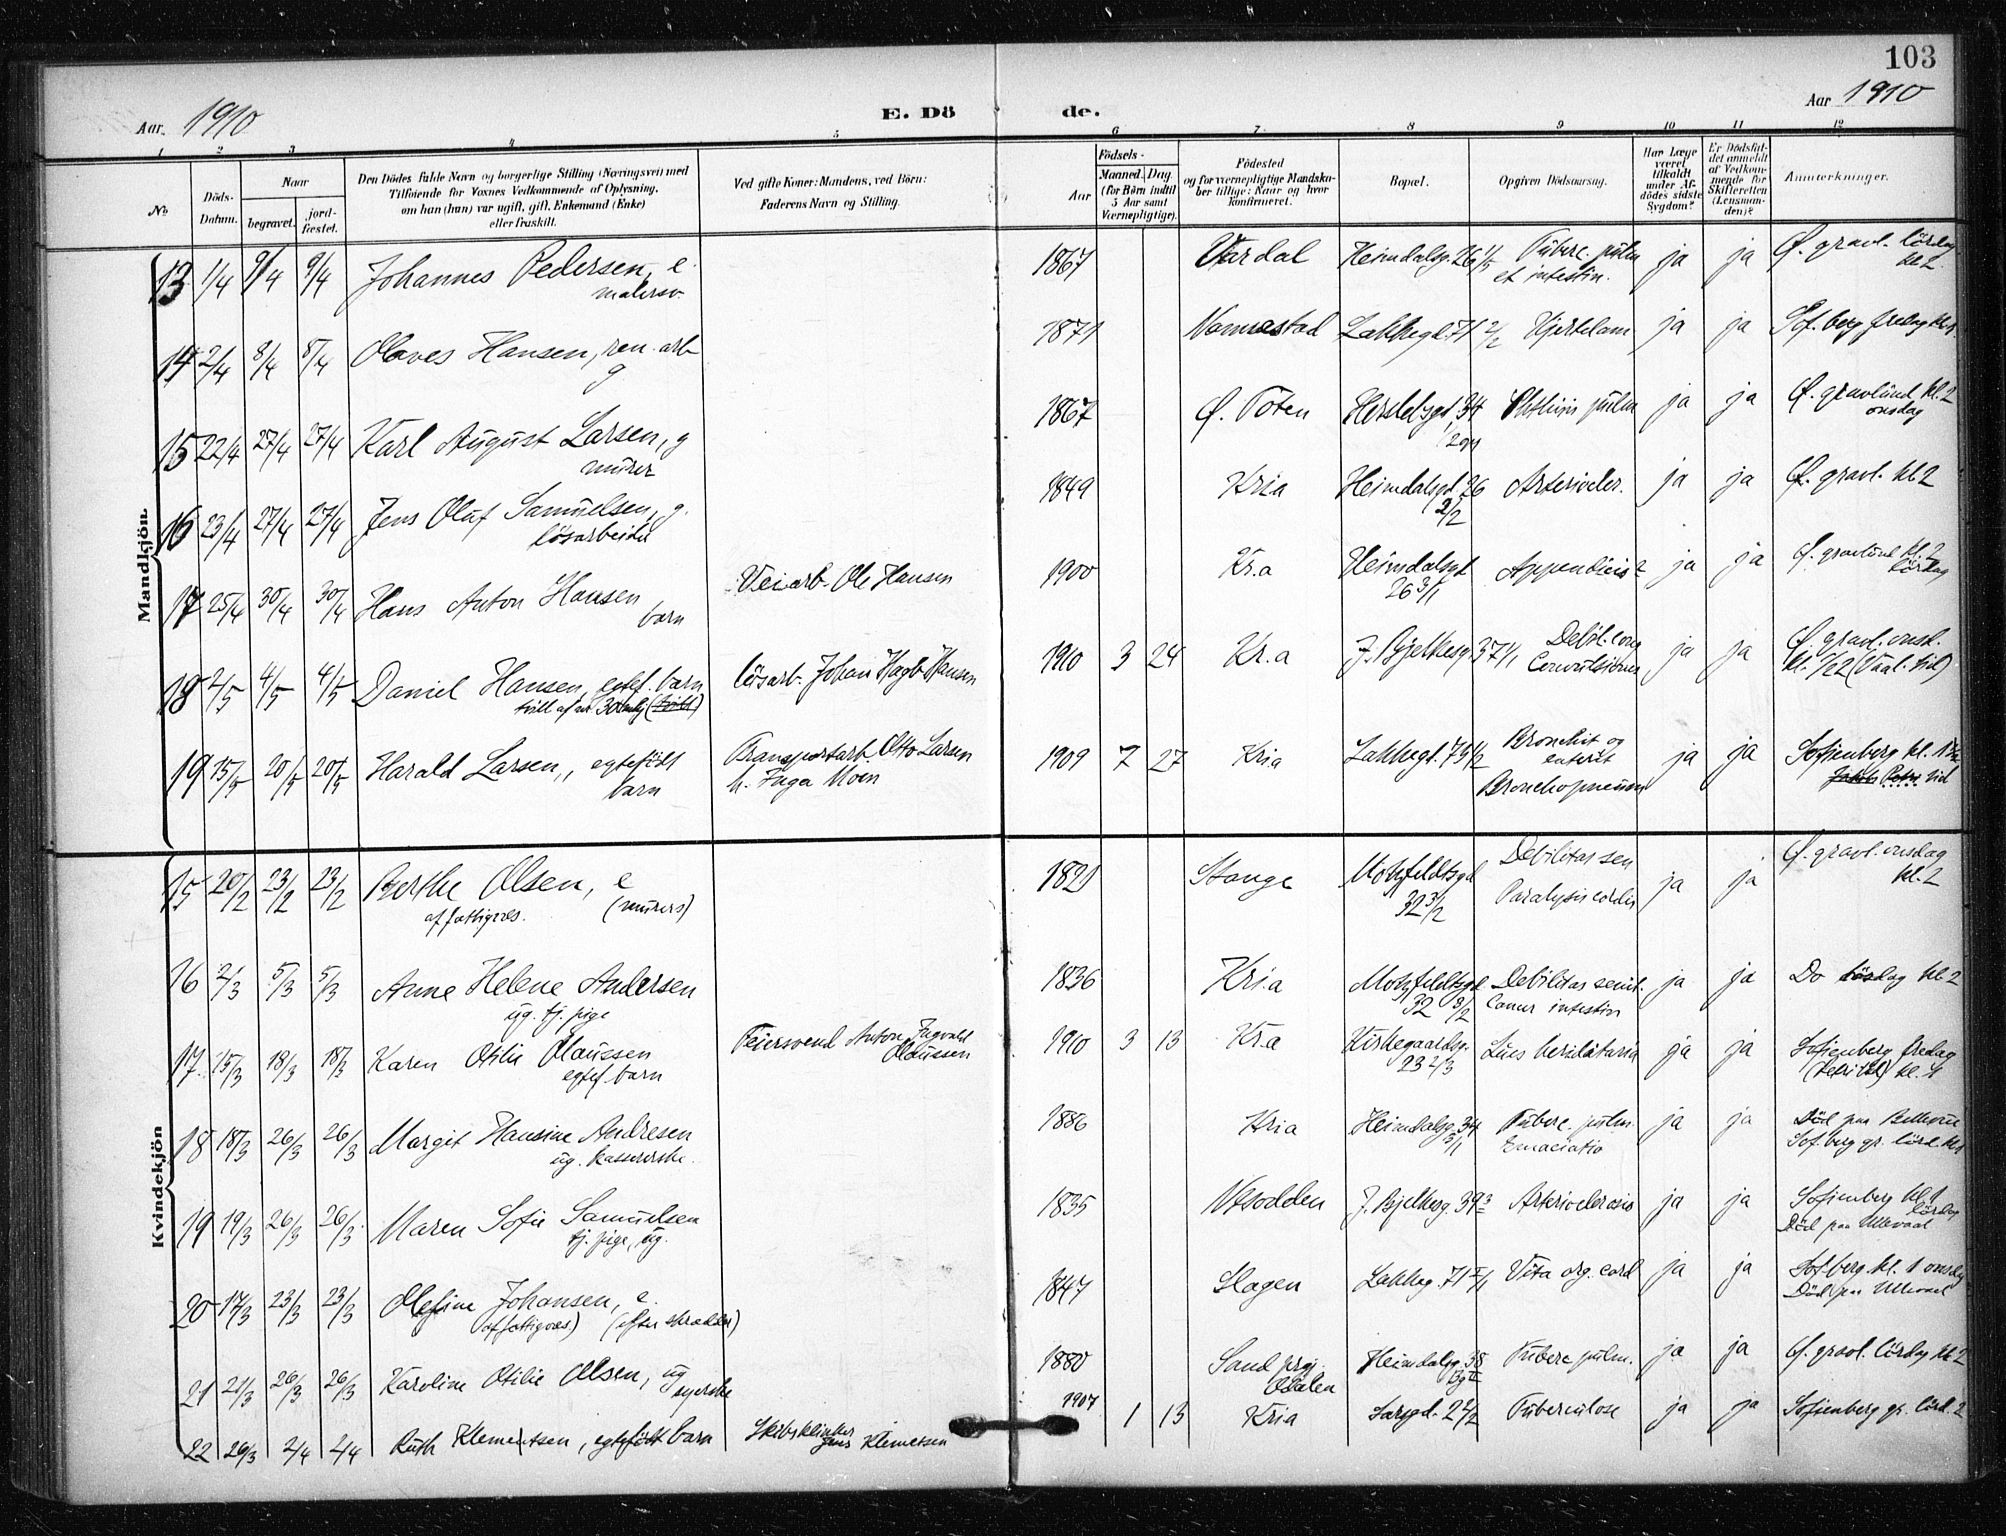 103
Aar 1910
E. Dö de.
Aar 1910
1 2 3 4 5 6 7 8 9 10 11 12
No
Döds-Datum.
Naar
begravet.
jord-fæstet.
Den Dödes fulde Navn og borgerlige Stilling (Næringsvei) med
Tilföiende for Voxnes Vedkommende af Oplysning,
om han (hun) var ugift, gift, Enkemand (Enke)
eller fraskilt.
Ved gifte Koner: Mandens, ved Börn:
Faderens Navn og Stilling.
Födsels-
Aar
Maaned. Dag.
(for Börn indtil
5 Aar samt
Værnepligtige).
Födested
og for værnepligtige Mandska-
ber tillige: Naar og hvor
konfirmeret.
Bopæl.
Opgiven Dödsaarsag.
Har Læge
været
tilkaldt
under Af-
dödes sidste
Sygdom?
Er Dödsfal-
det anmeldt
af Vedkom-
mende for
Skifteretten
(Lensman-
den)?
Anmerkninger.
Mandkjön.
13 1/4 9/4 9/4 Johannes Pedersen, e. 1867 Vardal Heimdalsg. 26 1/5 Tuberc. pulm ja ja Ø. gravl. lördag
malersv. et intestin. kl 2
14 2/4 8/4 8/4 Olaves Hansen, ren. arb 1871 Nannestad Lakkegd. 71 2/2 Hjertelam ja ja Sof. berg fredag kl 1
g
15 22/4 27/4 27/4 Karl August Larsen, g 1867 Ø. Toten Herslebsgd. 34 Phthisis pulm ja ja Ø. gravlund kl. 2
murer onsdag
16 23/4 27/4 27/4 Jens Oluf Samuelsen, g. 1849 Kria Heimdalsgd 26 Arterioscler. ja ja Ø. gravl. kl 2
lösarbeider 2/2
17 25/4 30/4 30/4 Hans Anton Hansen Veiarb. Ole Hansen 1900 Kr.a Heimdalsgt Appendicit ja ja Ø. gravlund kl. 2
barn 26 3/1 lördag
18 2/5 4/5 4/5 Daniel Hansen, egtef. barn lösarb. Johan Hagb Hansen 1910 3 24 Kr.a J. Bjelkesg. 37 1/1 Debil. cong ja ja Ø gravl. onsd.
Convulsiones kl. 1/2 2
19 15/5 20/5 20/5 Harald Larsen, egtefödt Transportarb. Otto Larsen 1909 7 27 Kria Lakkegt. 73 1/2 Bronchit og ja ja Sofienberg kl.
barn h. Inga Moen enterit
Bronchopneumoni
Kvindekjön
15 20/2 23/2 23/2 Berthe Olsen, e 1821 Stange Motzfeldtsgd Debilitas sen ja ja Ø. gravl. onsdag
af fattigvæs. (murers) 32 3/2 Paralysis cordis kl. 2
16 2/3 5/3 5/3 Anne Helene Andersen 1836 Kri.a Motzfeldtsgd Debilitas senil. ja ja Do kl 2
ug. tj. pige 32 3/2 Cancer intestin
17 15/3 18/3 18/3 Karen Otilie Olaussen Feiersvend Anton Ingvald 1910 3 13 Kr.a Kirkegaardsg. Lues hereditaria ja ja Sofienberg fredag
egtef. barn Olaussen 23 2/3 kl. 1
18 18/3 26/3 26/3 Margit Hansine Andresen 1886 Kria Heimdalsg. 34 Tuberc. pulm. ja ja Död paa Bellevue
ug. kassererske. 3/1 Emaciatio Sof. berg gr. lörd. kl 1
19 19/3 26/3 26/3 Maren Sofie Samuelsen 1835 Nesodden J. Bjelkesg. 39 Arteriosclerosis ja ja Sofienberg kl 1
tj. pige, ug. lördag
Död paa Ullevaal
20 17/3 23/3 23/3 Olefine Johansen, e. 1847 Slagen Lakkeg. 71 1/1 Vitia org. cord ja ja Sof. berg. kl. 1 onsdag
af fattigvæs) (efter skrædder) Död paa Ullevaal
21 21/3 26/3 26/3 Karoline Otilie Olsen, ug 1880 Sand prgj. Heimdalsg. 38 Tuberc pulm. ja ja Ø. gravl. lördag kl 2
syerske Odalen
22 29/3 2/4 2/4 Ruth Klementsen, egtefödt barn Skibsklinker 1907 1 13 Kria Sarsgd. 2 2/2 Tuberculose ja ja Sofienberg gr. lörd. 2
Jens Klemetsen